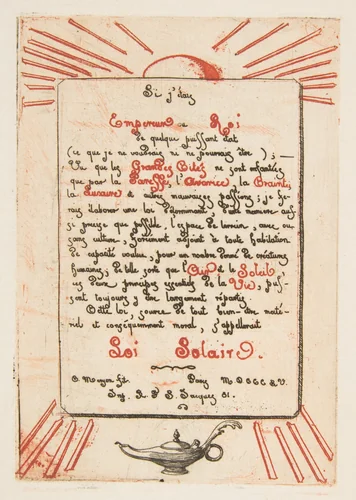 Si j'étais
Empereur ou Roi
de quelque puissant état
(ce que je ne voudrais ni ne pourrais être) ; —
Vu que les Grandes Cités ne sont enfantées
que par la Paresse, l'Avarice, la Crainte,
la Luxure et autres mauvaises passions, je fe-
rais élaborer une loi déterminant, d'une manière aus-
si précise que possible, l'espace de terrain, avec ou
sans culture, forcément adjoint à toute habitation
de capacité voulue, pour un nombre donné de créatures
humaines; de telle sorte que l'Air et le Soleil,
ces deux principes essentiels de la Vie, puis-
sent toujours y être largement répartis.
Cette loi, source de tout bien-être maté-
riel et conséquemment moral, s'appellerait
Loi Solaire.
C. Meryon fit. Paris M.DCCC.LV.
Imp. R. St. Jacques 81.